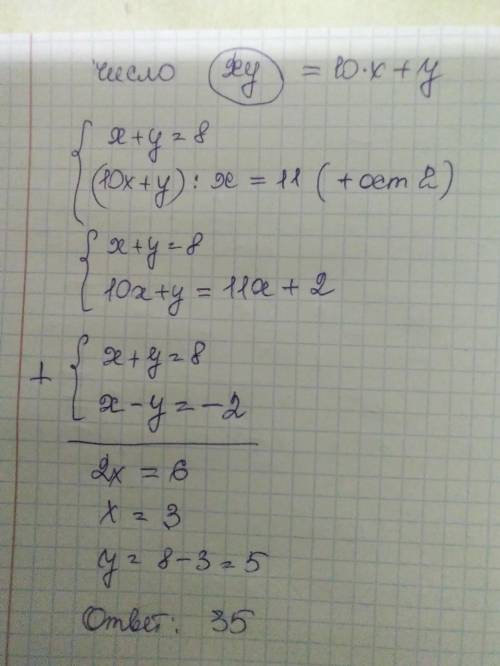 число xy = 10·x+y
x+y=8
(10x+y) : x = 11 (+ост 2)
x+y=8
10x+y = 11x + 2
+ x+y=8
x-y=-2
2x = 6
x = 3
y = 8-3=5
Ответ: 35